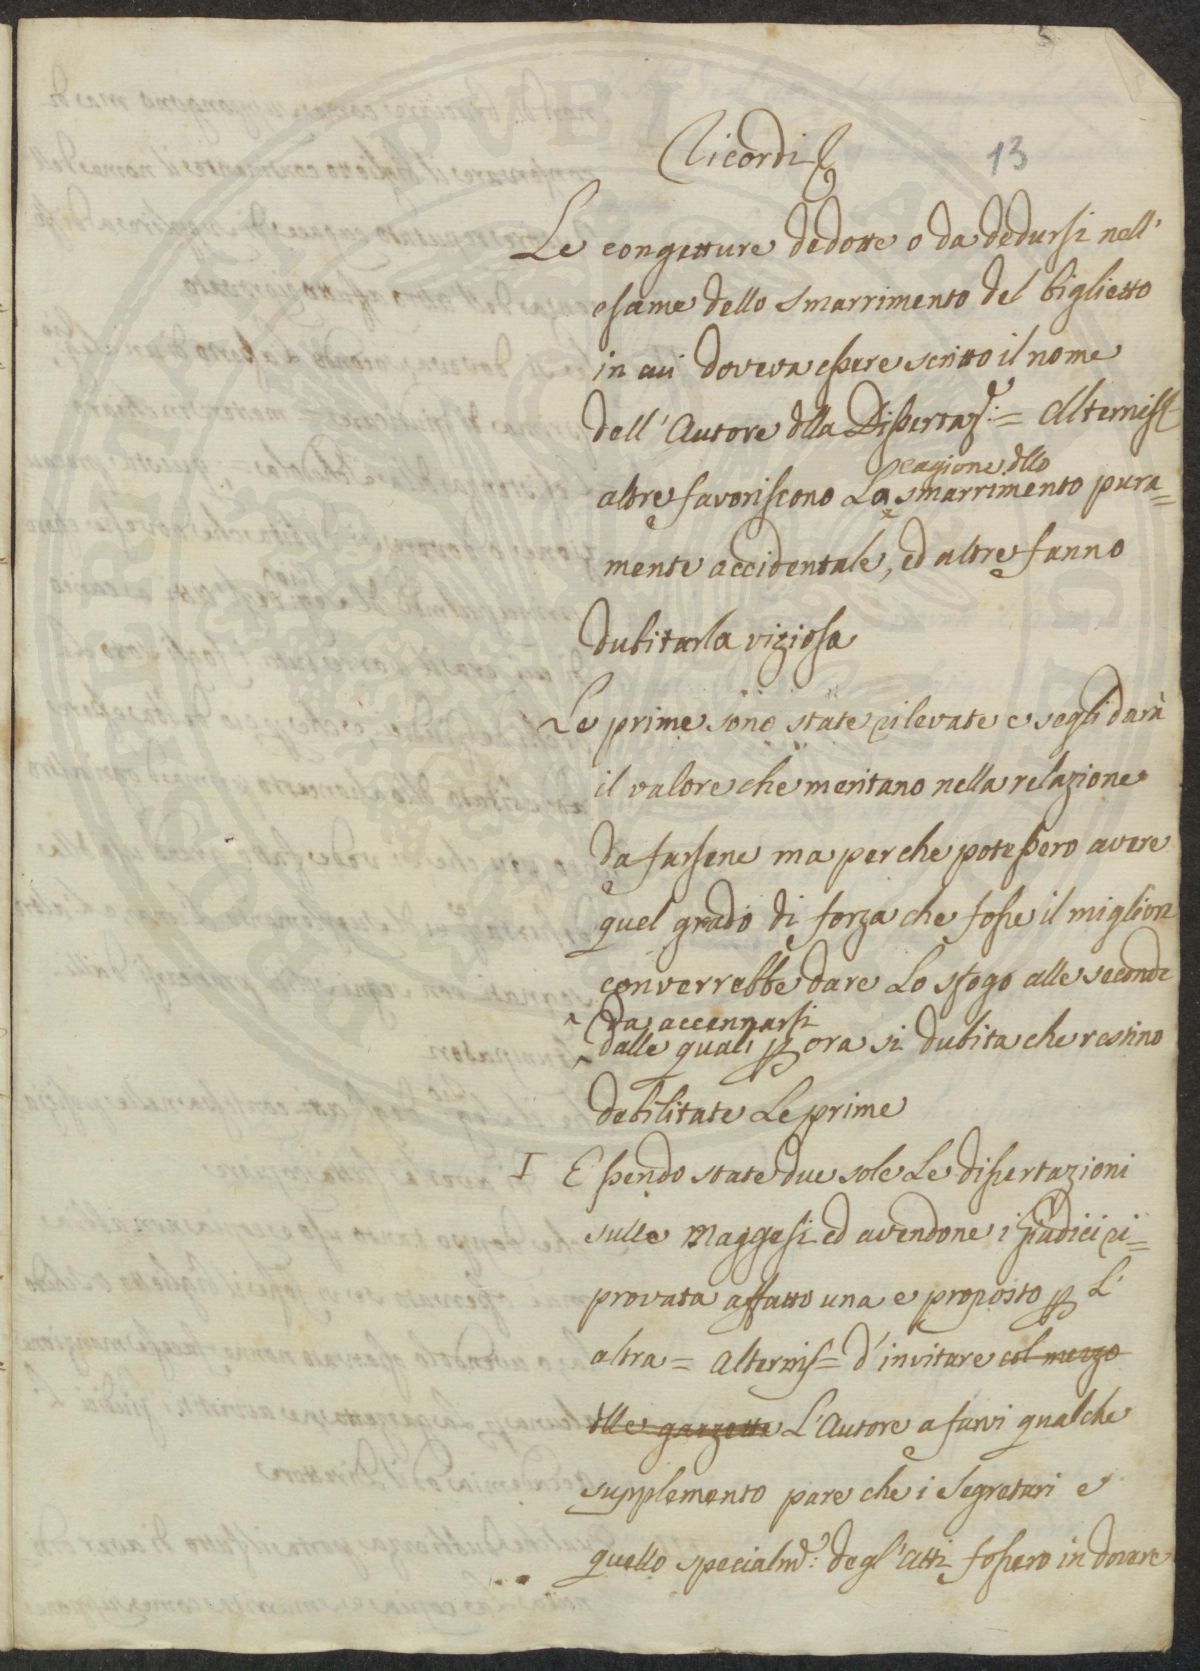 5
Ricordi
13
Le congetture dedotte o da dedursi nell'
esame dello smarrimento del biglietto
in cui doveva essere scritto il nome
dell'Autore dlla Dissertaz.e = Alternis =
cagione dllo
altre favoriscono La smarrimento pura=
mente accidentale, ed altre fanno
dubitarla viziosa
Le prime sono state rilevate e segli darà
il valore che meritano nella relazione
da farsene ma perche potessero avere
quel grado di forza che fosse il miglior
converrebbe dare Lo sfogo alle seconde
^ da accennarsi
^ dalle quali p ora si dubita che restino
debilitate Le prime
I Essendo state due sole Le dissertazioni
sulle Maggesi ed avendone i Giudici ri=
provata affatto una e proposto p L'
altra = Alternis = d'invitare col mezzo
dlle gazzette L'Autore a farvi qualche
supplemento pare che i Segretari e
quello specialm.e: degl'Atti fossero in dovere